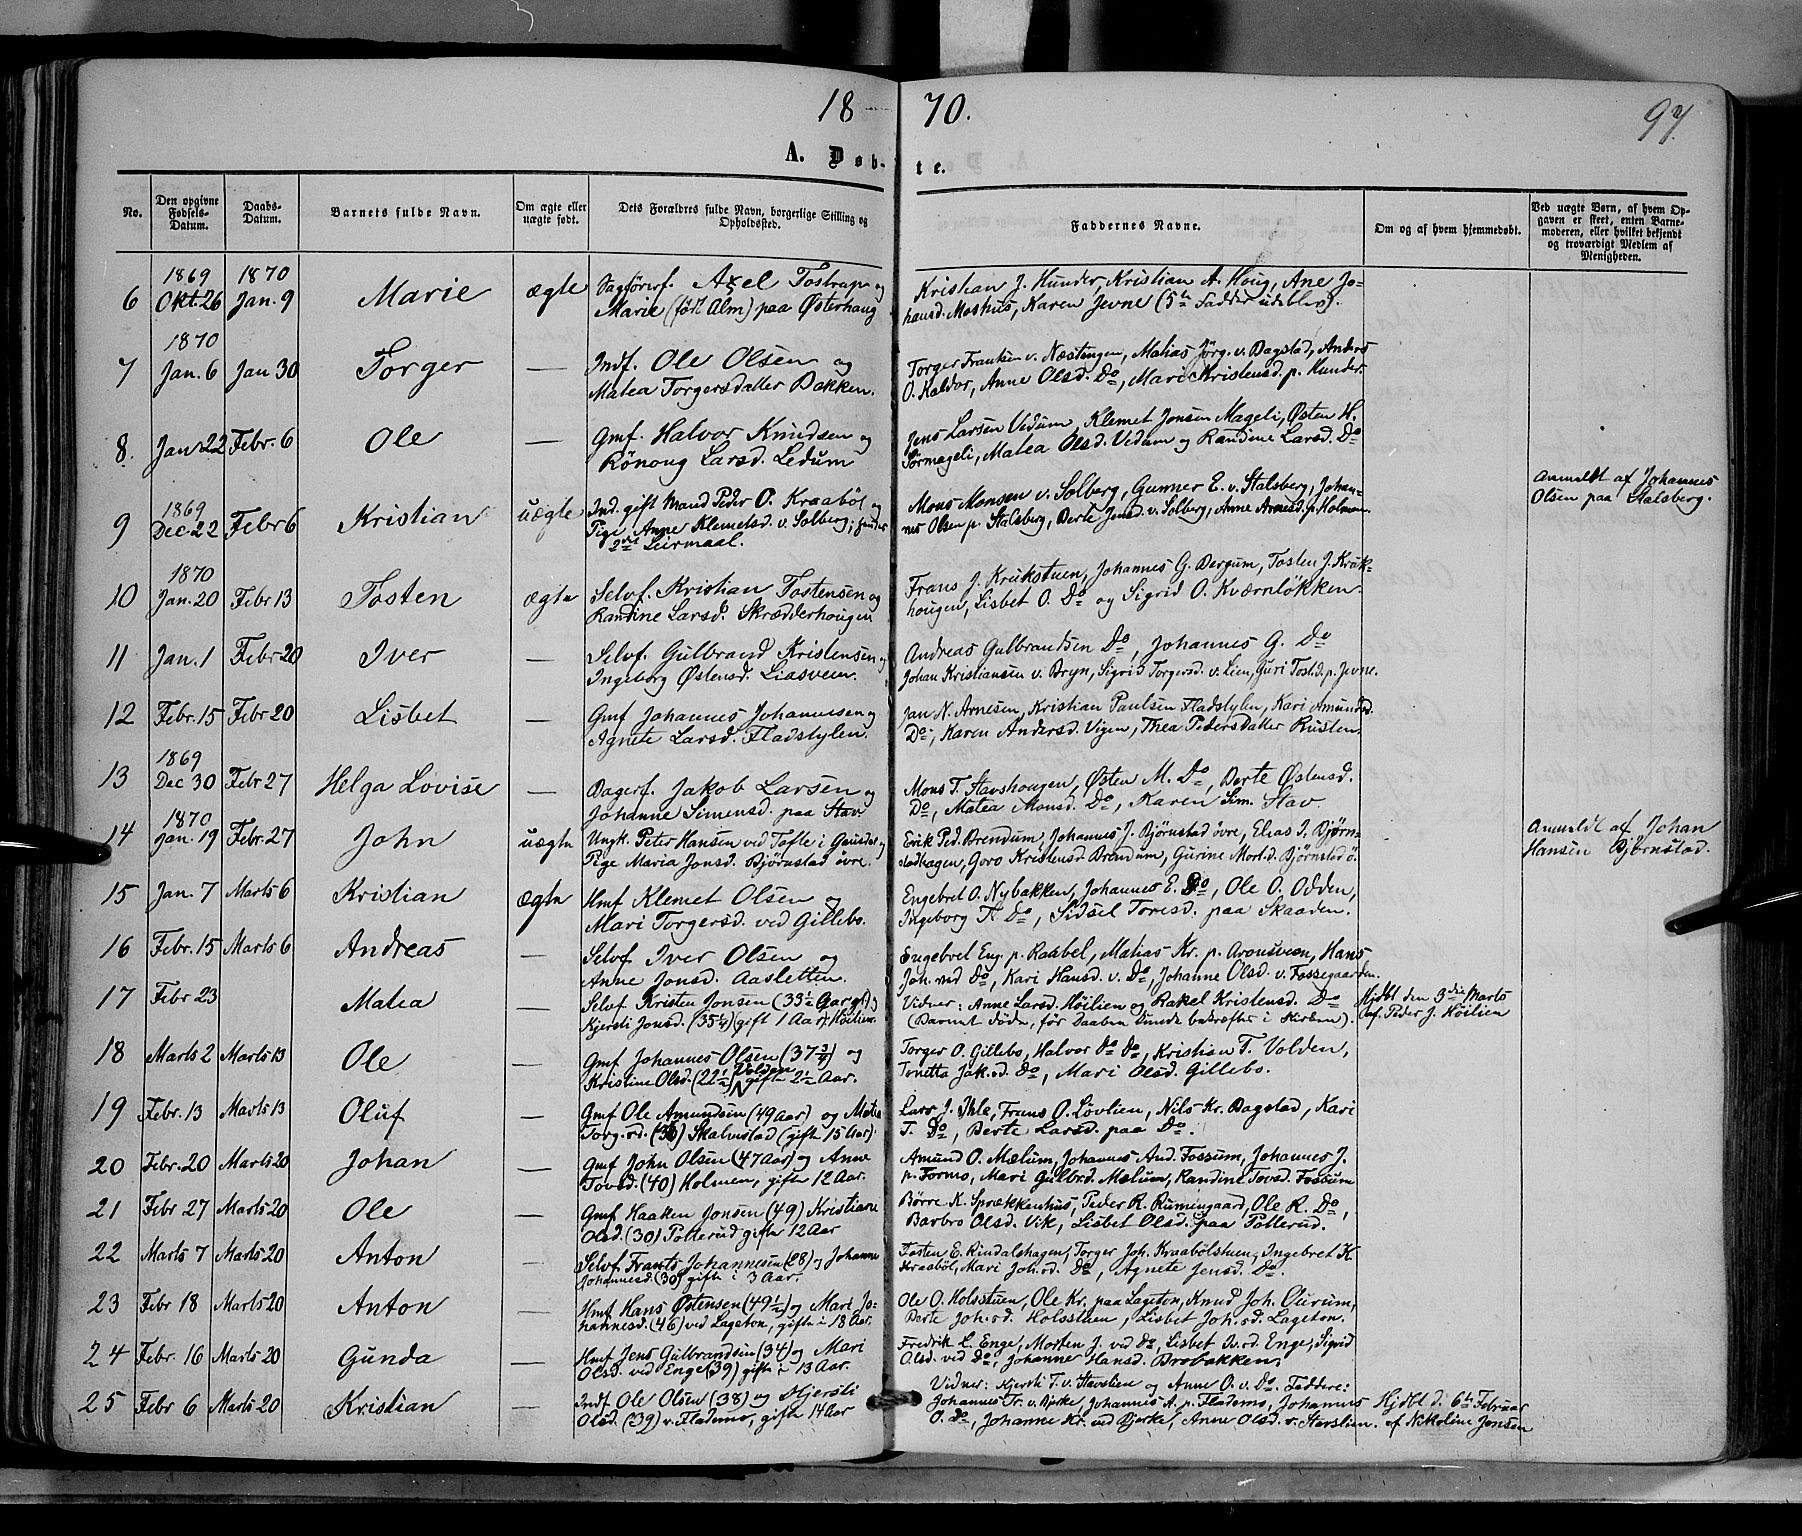 1870.
97.
A. Døbte.
No.
Den opgivne Fødsels-Datum.
Daabs-Datum.
Barnets fulde Navn.
Om ægte eller uægte født.
Dets Forældres fulde Navn, borgerlige Stilling og Opholdssted.
Faddernes Navne.
Om og af hvem hjemmedøbt.
Ved uægte Børn, af hvem Opgaven er skeet, enten Barnemoderen, eller hvilket bekjendt og troværdigt Medlem af Menigheden.
6 1869 Okt. 26 1870 Jan. 9 Marie ægte Sagförerf. Axel Tostrup og
Marie (født Alm) paa Østerhaug
Kristian J. Hunder, Kristian A. Houg, Ane Jo-
hansd. Moshus, Karen Jevne (5te Fadder udeblev).
7 1870 Jan. 6 Jan 30 Torger — Indf. Ole Olsen og
Matea Torgersdatter Bakken.
Torger Frantsen v. Næstingen, Matias Jörg. v. Bagstad, Anders
O. Kaldor, Anne Olsd. Do, Mari Kristensd. p. Hunder.
8. Jan 22 Febr. 6 Ole — Gmf. Halvor Knudsen og
Rönoug Larsd. Ledum
Jens Larsen Vedum, Klemet Jonsen Mageli, Østen H.
Sörmageli, Matea Olsd. Vedum og Randine Larsd. Do
9 1869 Dec. 22 Febr 6 Kristian uægte Ind. gift Mand Peder O. Kraaböl og
Pige Anne Klemetsd. v. Solberg; hendes
2det Leiermaal.
Mons Monsen v. Solberg, Gunner E. v. Stalsberg, Johan-
nes Olsen p. Stalsberg, Berte Jensd. v. Solberg, Anne Arnesd. p. Holmen
Anmeldt af Johannes
Olsen paa Stalsberg.
10 1870 Jan. 20 Febr 13 Tosten ægte Selvf. Kristian Tostensen og
Randine Larsd. Skrædderhougen
Frans J. Krukstuen, Johannes G. Bergum, Tosten J. Kruk-
hougen, Lisbet O. Do og Sigrid O. Kværnløkken.
11 Jan. 1 Febr 20 Iver — Selvf. Gulbrand Kristensen og
Ingeborg Østensd. Liasveen.
Andreas Gulbrandsen Do, Johannes G. Do
Johan Kristiansen v. Bryn, Sigrid Torgersd. v. Lien, Guri Tost.d. p. Jevne.
12 Febr. 15 Febr 20 Lisbet — Gmf Johannes Johannesen og
Agnete Larsd. Fladstylen.
Jan N. Arnesen, Kristian Paulsen Fladstylen, Kari Amundsd.
Do, Karen Andersd. Vigen, Thea Pedersdatter Rusten.
13 1869 Dec 30 Febr 27 Helga Lovise — Bagerf. Jakob Larsen og
Johanne Simensd. paa Stav
Mons T. Stavshougen, Østen M. Do, Berte Østensd.
Do, Matea Monsd. Do, Karen Sim. Stav.
14 1870 Jan. 19 Febr. 27 John uægte Ungk. Peter Hansen ved Tofte i Gausdal og
Pige Maria Jonsd. Bjørnstad øvre.
Erik Ped. Brendum, Johannes J. Bjørnstad øvre, Elias I. Bjørn-
stadhagen, Goro Kristensd Brendum, Gurine Mort.d. Bjørnstad ö.
Anmeldt af Johan
Hansen Bjørnstad.
15 Jan. 7 Marts 6 Kristian ægte Hmf Klemet Olsen og
Mari Torgersd. ved Gillebo.
Engebret O. Nybakken, Johannes E. Do, Ole O. Odden,
Ingeborg T. Do, Sidsel Toresd. paa Skaaden.
16 Febr. 15 Marts 6 Andreas — Selvf Iver Olsen og
Anne Jonsd. Aasletten.
Engebret Eng. p. Raabel, Matias Kr. p. Aronsveen, Hans
Joh. ved Do, Kari Hansd. v. Do, Johanne Olsd. v. Fossegaarden.
17 Febr 23 Matea — Selvf. Kristen Jonsen (33½ Aar gl.) og
Kjersti Jonsd. (35¼) (gift 1 Aar). Høilien.
Vidner: Anne Larsd. Høilien og Rakel Kristensd. Do
(Barnet døde, før Daaben kunde bekræftes i Kirken).
Hjdbt den 3die Marts
af Peder J. Høilien
18 Marts 2 Marts 13 Ole — Gmf. Johannes Olsen (37¾) og
Kristine Olsd. (22½) Volden gifte 2½ Aar.
Torger O. Gillebo, Halvor Do Do, Kristian T. Volden,
Tonetta Jak.sd. Do, Mari Olsd. Gillebo.
19 Febr. 13 Marts 13 Oluf — Gmf Ole Amundsen (49 Aar) og Matea
Torg.sd. (36) Skalmstad (gift 15 Aar).
Lars J. Ihle, Frans O. Lövlien, Nils Kr. Bagstad, Kari
T. Do, Berte Larsd. paa Do.
20 Febr. 20 Marts 20 Johan — Gmf John Olsen (47 Aar) og Anne
Tovsd. (40) Holmen, gifte 12 Aar.
Amund O. Mælum, Johannes And. Fossum, Johannes J.
p. Formo, Mari Gulbr.d. Mælum, Randine Tovsd. Fossum
21 Febr 27 Marts 20 Ole — Gmf Haaken Jonsen (49) Kristiane
Olsd. (30) Potterud gifte 12 Aar
Børre K. Sprækkenhus, Peder R. Rumingaard, Ole R. Do,
Barbro Olsd. Vik, Lisbet Olsd. paa Potterud.
22 Marts 7 Marts 20 Anton — Selvf Frants Johannesen (28) og Johanne
Johannesd. (30) gifte i 3 Aar.
Tosten E. Rindalshagen, Torger Joh. Kraabölstuen, Ingebret K.
Kraaböl, Mari Joh.sd. Do, Agnete Jensd. Do.
23 Febr 18 Marts 20 Anton — Hmf Hans Østensen (49½) og Mari Jo-
hannesd. (46) ved Lageton, gifte i 18 Aar.
Ole O. Holsstuen, Ole Kr. paa Lageton, Knud Joh. Ourum,
Berte Joh.sd. Holsstuen, Lisbet Joh.sd. Lageton.
24 Febr. 16 Marts 20 Gunda — Hmf Jens Gulbrandsen (34) og Mari
Olsd. ved Enge (39) gifte i 13 Aar.
Fredrik L. Enge, Morten J. ved Do, Lisbet Iv.sd. Enge, Sigrid
Olsd. ved Do, Johanne Hansd. Brobakken.
25 Febr 6 Marts 20 Kristian — Indf Ole Olsen (38) og Kjersti
Olsd. (39) v. Flademo, gifte 14 Aar
Vidner: Kjersti T. v. Stavslien og Anne O. v. Do. Faddere:
Johannes Tr. v. Bjerke, Johannes A. p. Flademo, Johannes
O. Do, Johanne Kr. ved Bjerke, Anne Olsd. v. Stavslien.
Hjdbt d. 6te Februar
af Nikoline Jensen